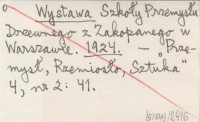 Wystawa Szkoły Przemysłu
Drzewnego z Zakopanego w
Warszawie. 1924. — "Prze-
mysł, Rzemiosło, Sztuka"
4, nr 2: 41.